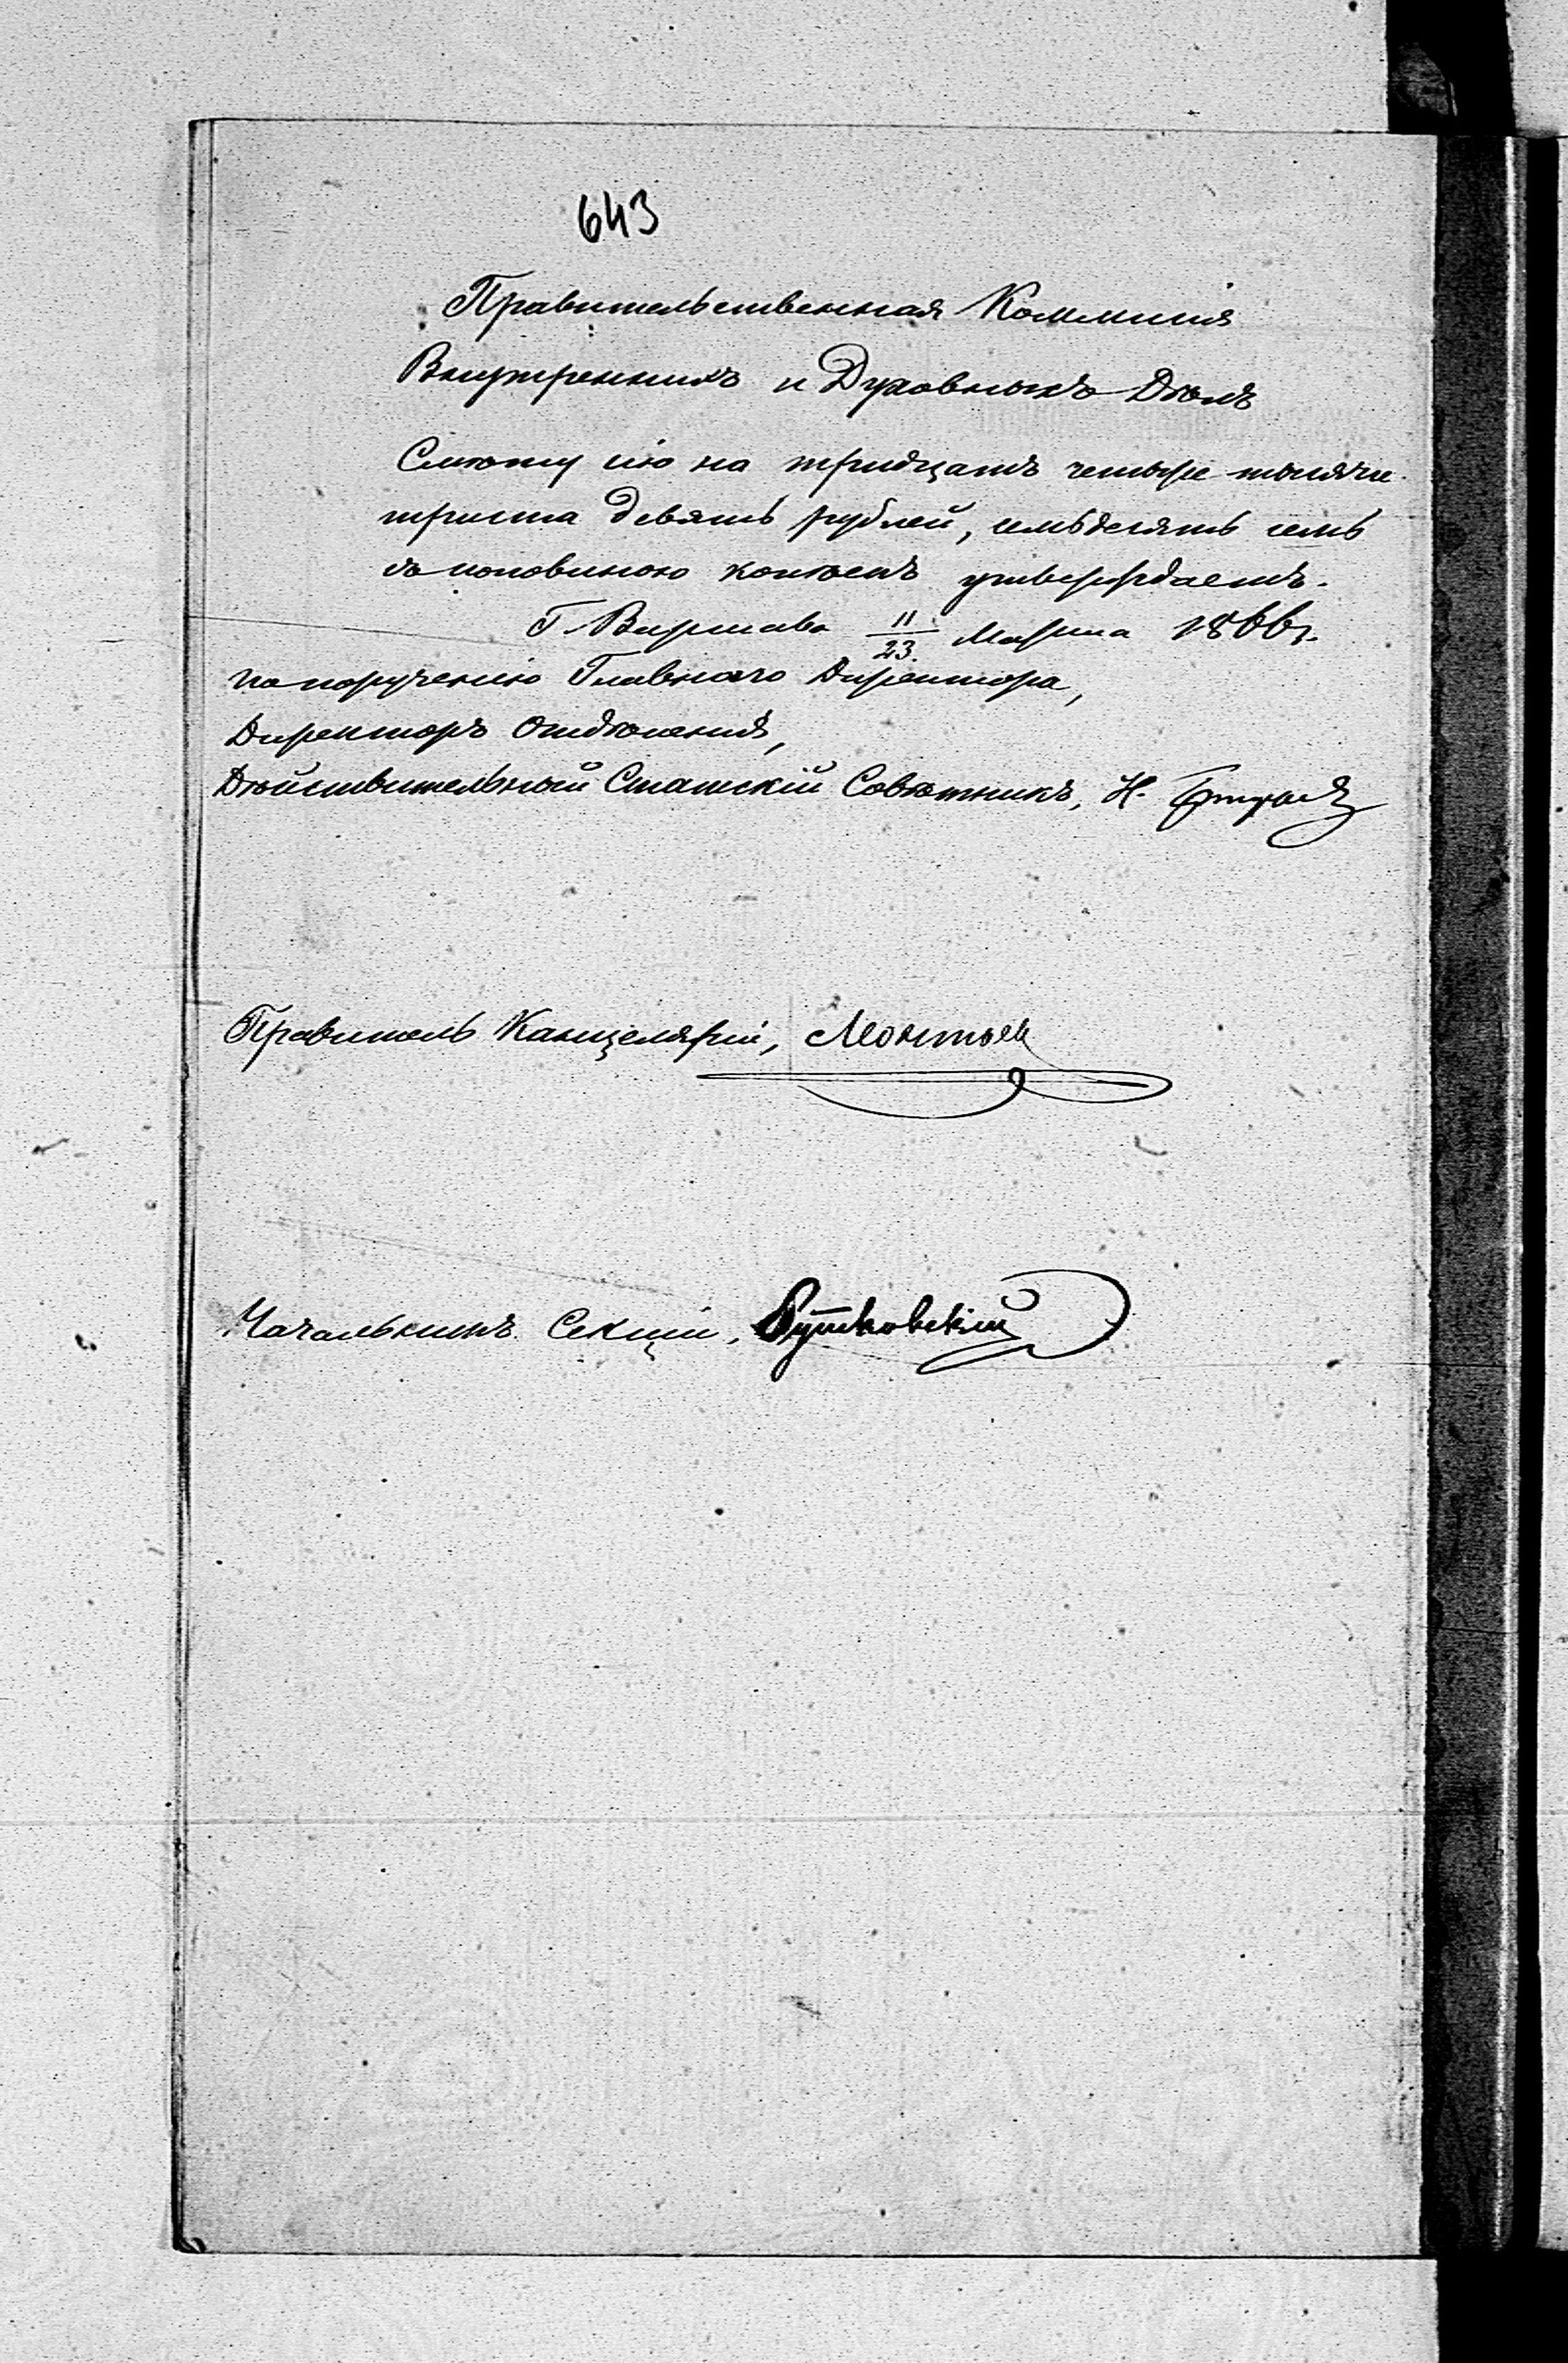 643
Правительственная Коммисія
Внутреннихъ и Духовныхъ Дѣлъ
Смѣту сію на тридцать четыре тысячи
триста девять рублей, семьдесять семь
съ половиною копѣекъ утверждаетъ.
Г. Варшава 11/23 Марта 1866 г.
по порученію Главнаго Директора,
Директоръ Отдѣленія,
Дѣйствительный Статскій Совѣтникъ, Н.
Правитель Канцеляріи, Леонтьев
Начальникъ Секціи,